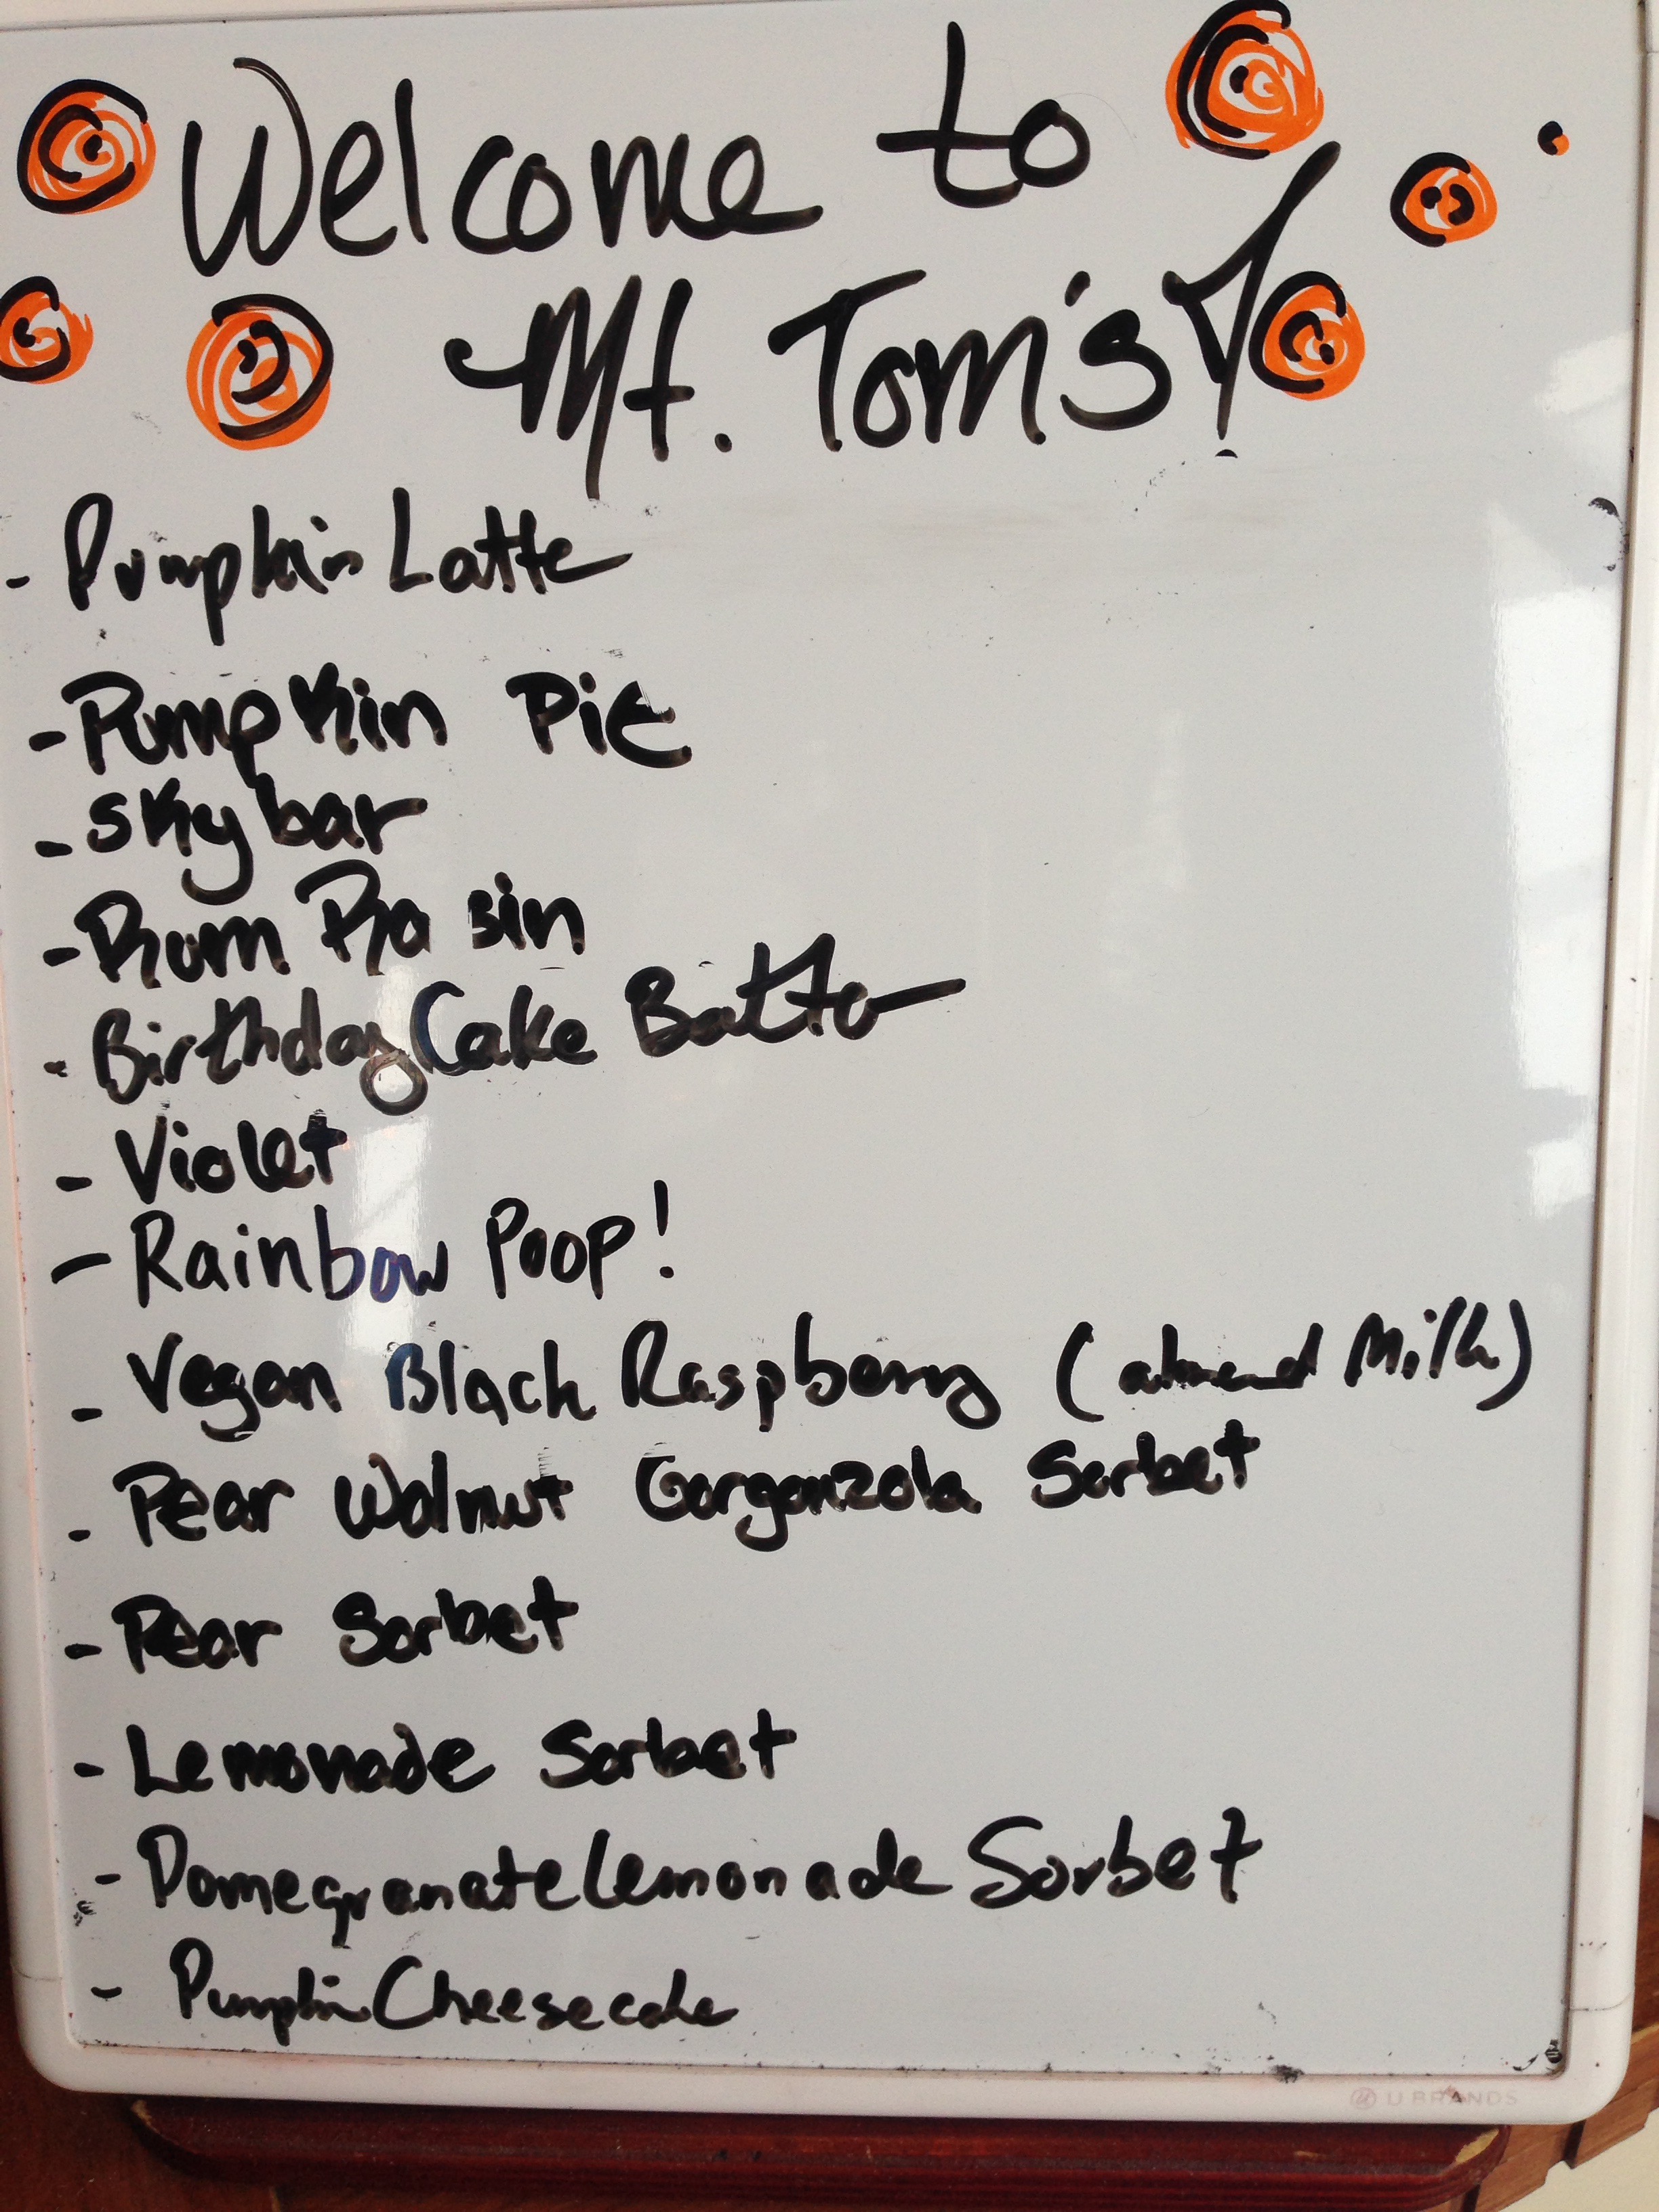 Welcome to
Mt. Tom's!
- Pumpkin Latte
- Pumpkin Pie
- Skybar
- Rum Raisin
- Birthday Cake Batter
- Violet
- Rainbow Poop!
- Vegan Black Raspberry (almond Milk)
- Pear Walnut Gorgonzola Sorbet
- Pear Sorbet
- Lemonade Sorbet
- Pomegranate Lemonade Sorbet
- Pumpkin Cheesecake
U BRANDS